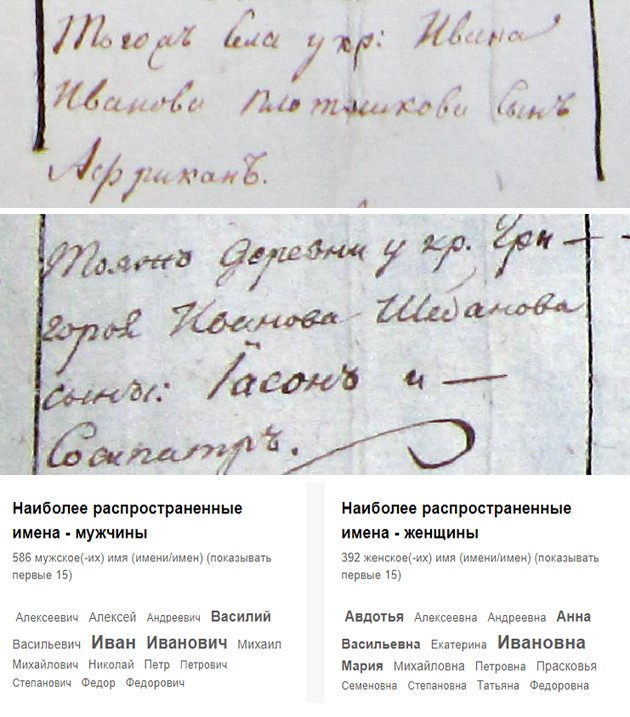 Тогожъ села у кр: Ивана
Иванова Плотникова сынъ
Африканъ.
Тояжъ деревни у кр. Гри-
горья Иванова Шебанова
сынъ: Іасонъ и —
Сосипатръ.
Наиболее распространенные
имена - мужчины
586 мужское(-их) имя (имени/имен) (показывать
первые 15)
Алексеевич Алексей Андреевич Василий
Васильевич Иван Иванович Михаил
Михайлович Николай Петр Петрович
Степанович Федор Федорович
Наиболее распространенные
имена - женщины
392 женское(-их) имя (имени/имен) (показывать
первые 15)
Авдотья Алексеевна Андреевна Анна
Васильевна Екатерина Ивановна
Мария Михайловна Петровна Прасковья
Семеновна Степановна Татьяна Федоровна